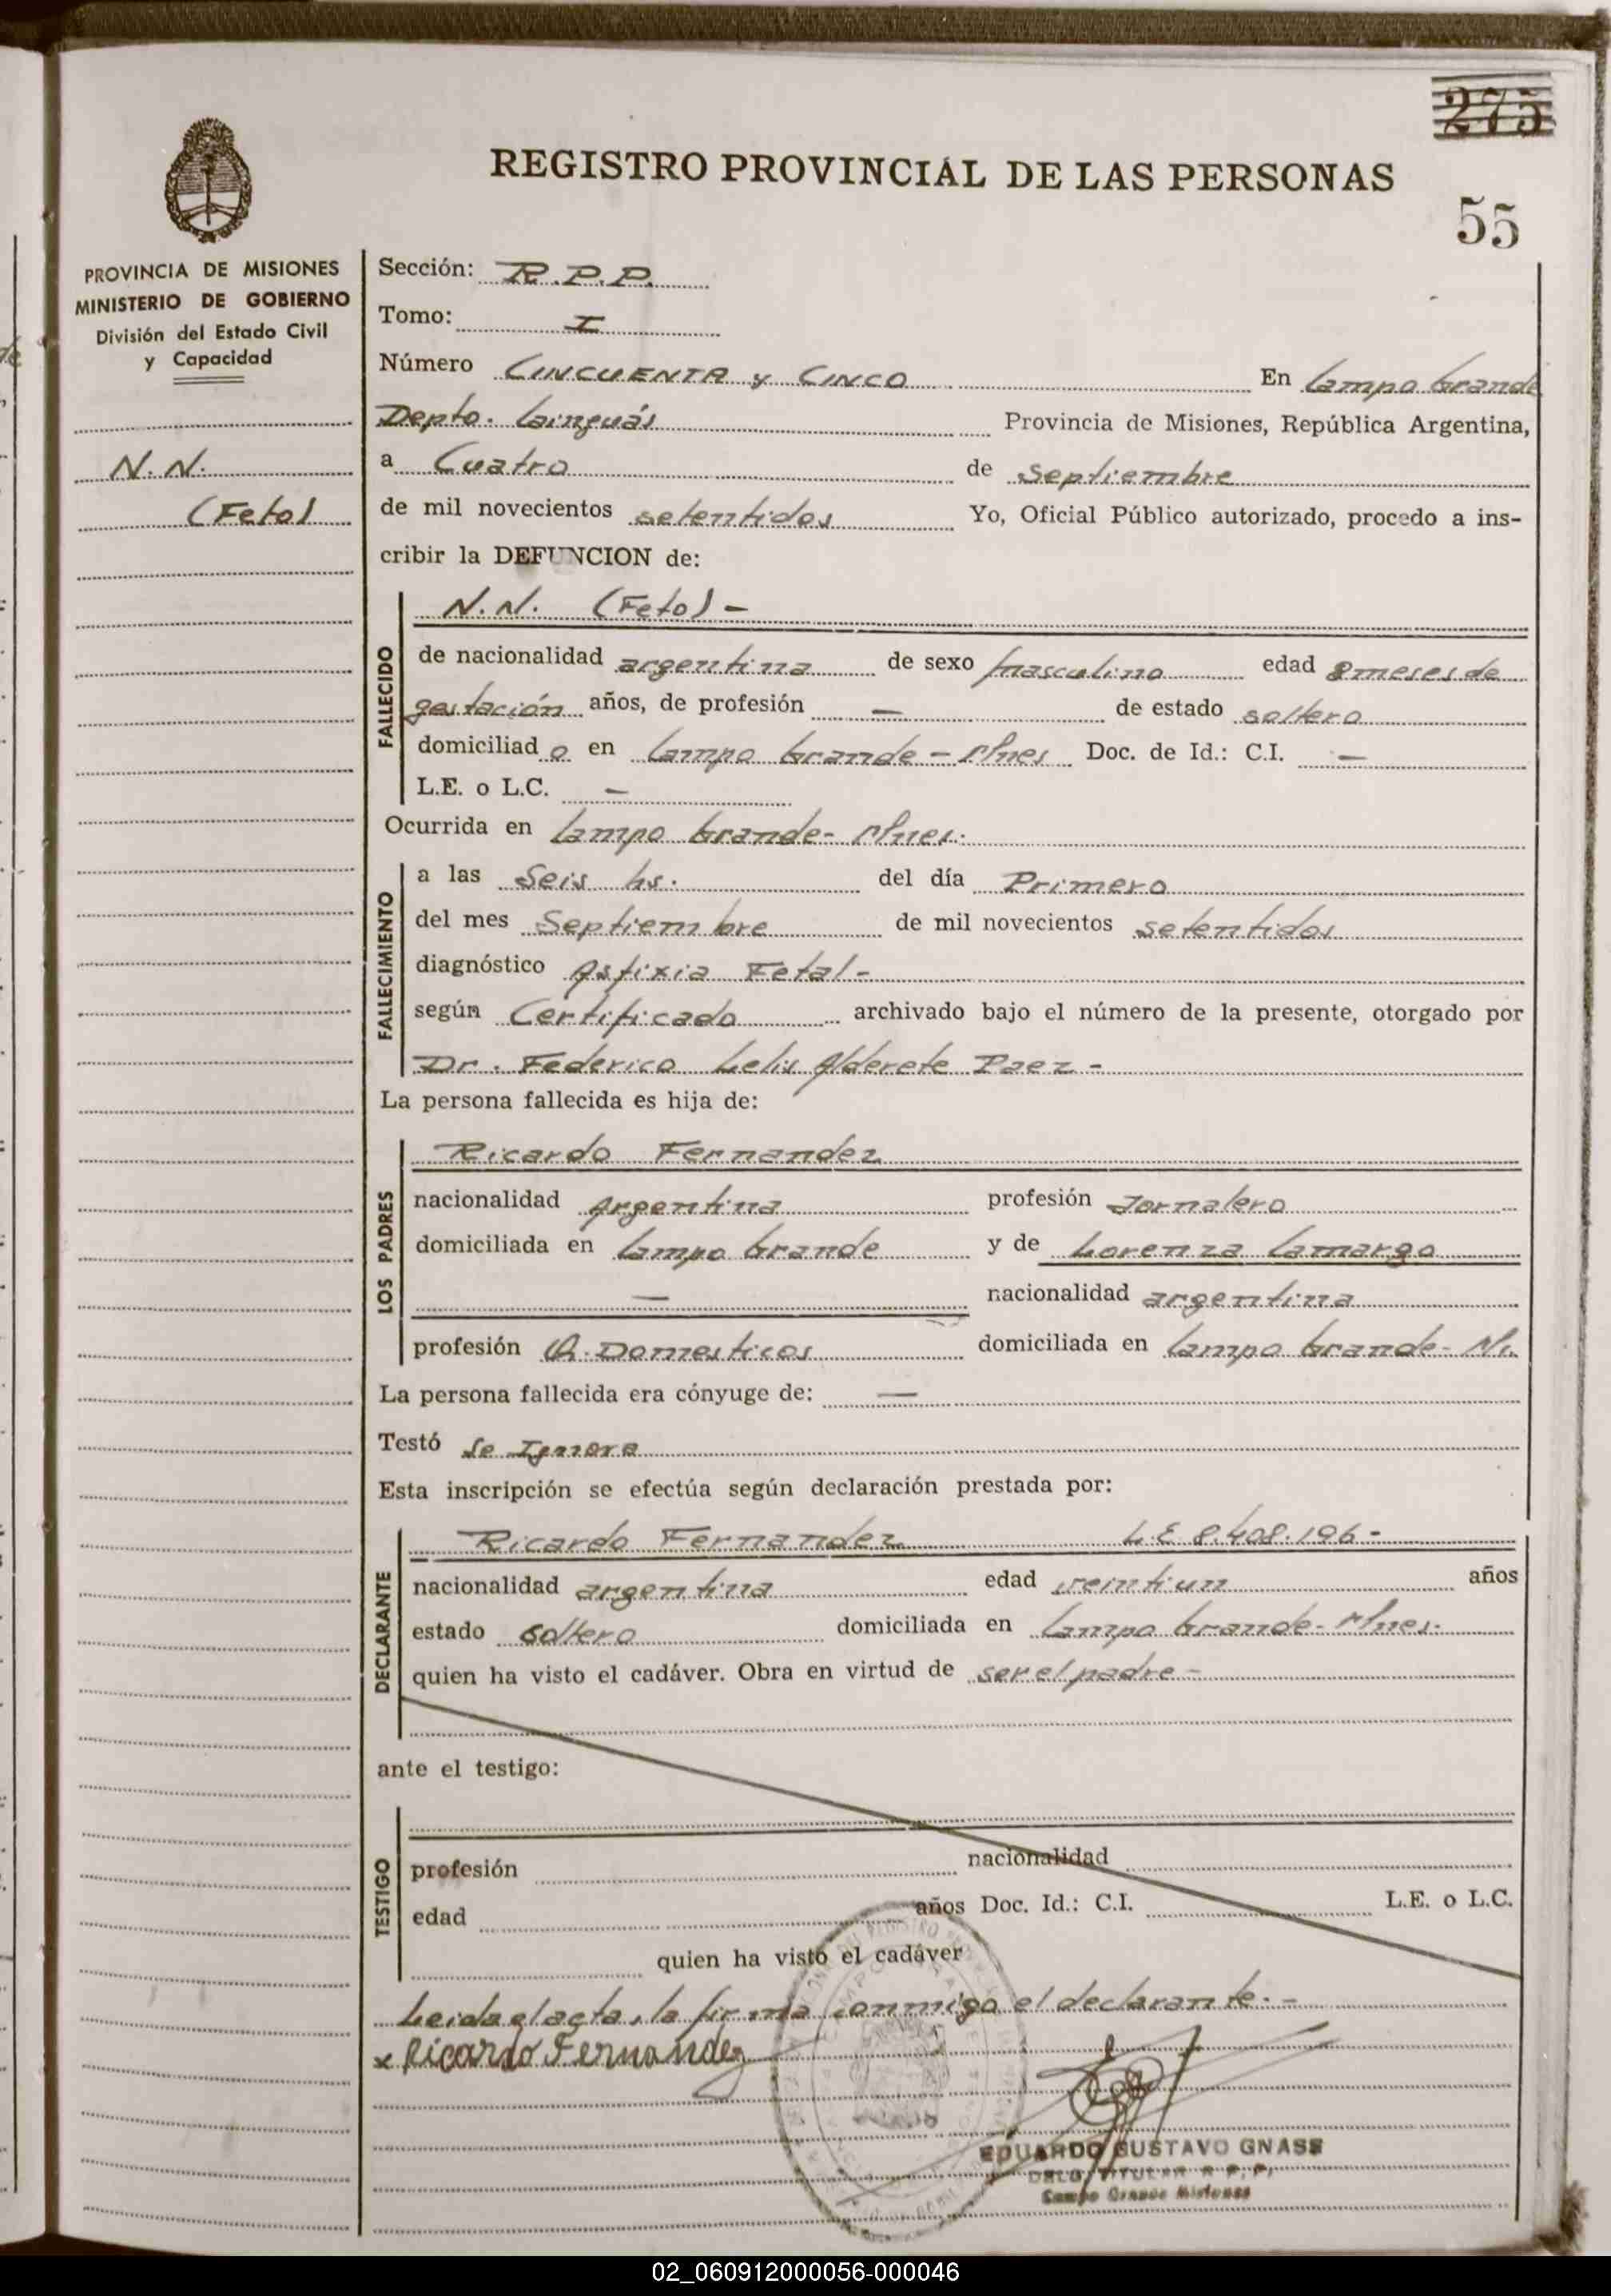 275
REGISTRO PROVINCIAL DE LAS PERSONAS
55
PROVINCIA DE MISIONES
MINISTERIO DE GOBIERNO
División del Estado Civil
y Capacidad
N.N.
(Feto)
Sección: R.P.P.
Tomo: I
Número CINCUENTA y CINCO En Campo Grande
Depto. Cainguás Provincia de Misiones, República Argentina,
a Cuatro de Septiembre
de mil novecientos setentidos Yo, Oficial Público autorizado, procedo a ins-
cribir la DEFUNCION de:
FALLECIDO
N.N. (Feto) -
de nacionalidad argentina de sexo masculino edad 8 meses de
gestación años, de profesión — de estado soltero
domiciliado en Campo Grande - Mnes Doc. de Id.: C.I. —
L.E. o L.C. —
Ocurrida en Campo Grande - Mnes.
FALLECIMIENTO
a las Seis hs. del día Primero
del mes Septiembre de mil novecientos setentidos
diagnóstico Asfixia Fetal -
según Certificado archivado bajo el número de la presente, otorgado por
Dr. Federico Lelis Alderete Paez -
La persona fallecida es hija de:
LOS PADRES
Ricardo Fernandez
nacionalidad Argentina profesión Jornalero
domiciliada en Campo Grande y de Lorenza Camargo
— nacionalidad argentina
profesión Q. Domesticos domiciliada en Campo Grande - Ms.
La persona fallecida era cónyuge de: —
Testó Se Ignora
Esta inscripción se efectúa según declaración prestada por:
DECLARANTE
Ricardo Fernandez L.E 8.408.196 -
nacionalidad argentina edad veintiun años
estado soltero domiciliada en Campo Grande - Mnes.
quien ha visto el cadáver. Obra en virtud de ser el padre -
ante el testigo:
TESTIGO
profesión nacionalidad
edad años Doc. Id.: C.I. L.E. o L.C.
quien ha visto el cadáver
Leida el acta, la firma conmigo el declarante. -
x Ricardo Fernandez
EDUARDO GUSTAVO GNASS
DELG. TITULAR R.P.P.
Campo Grande Misiones
02_060912000056-000046